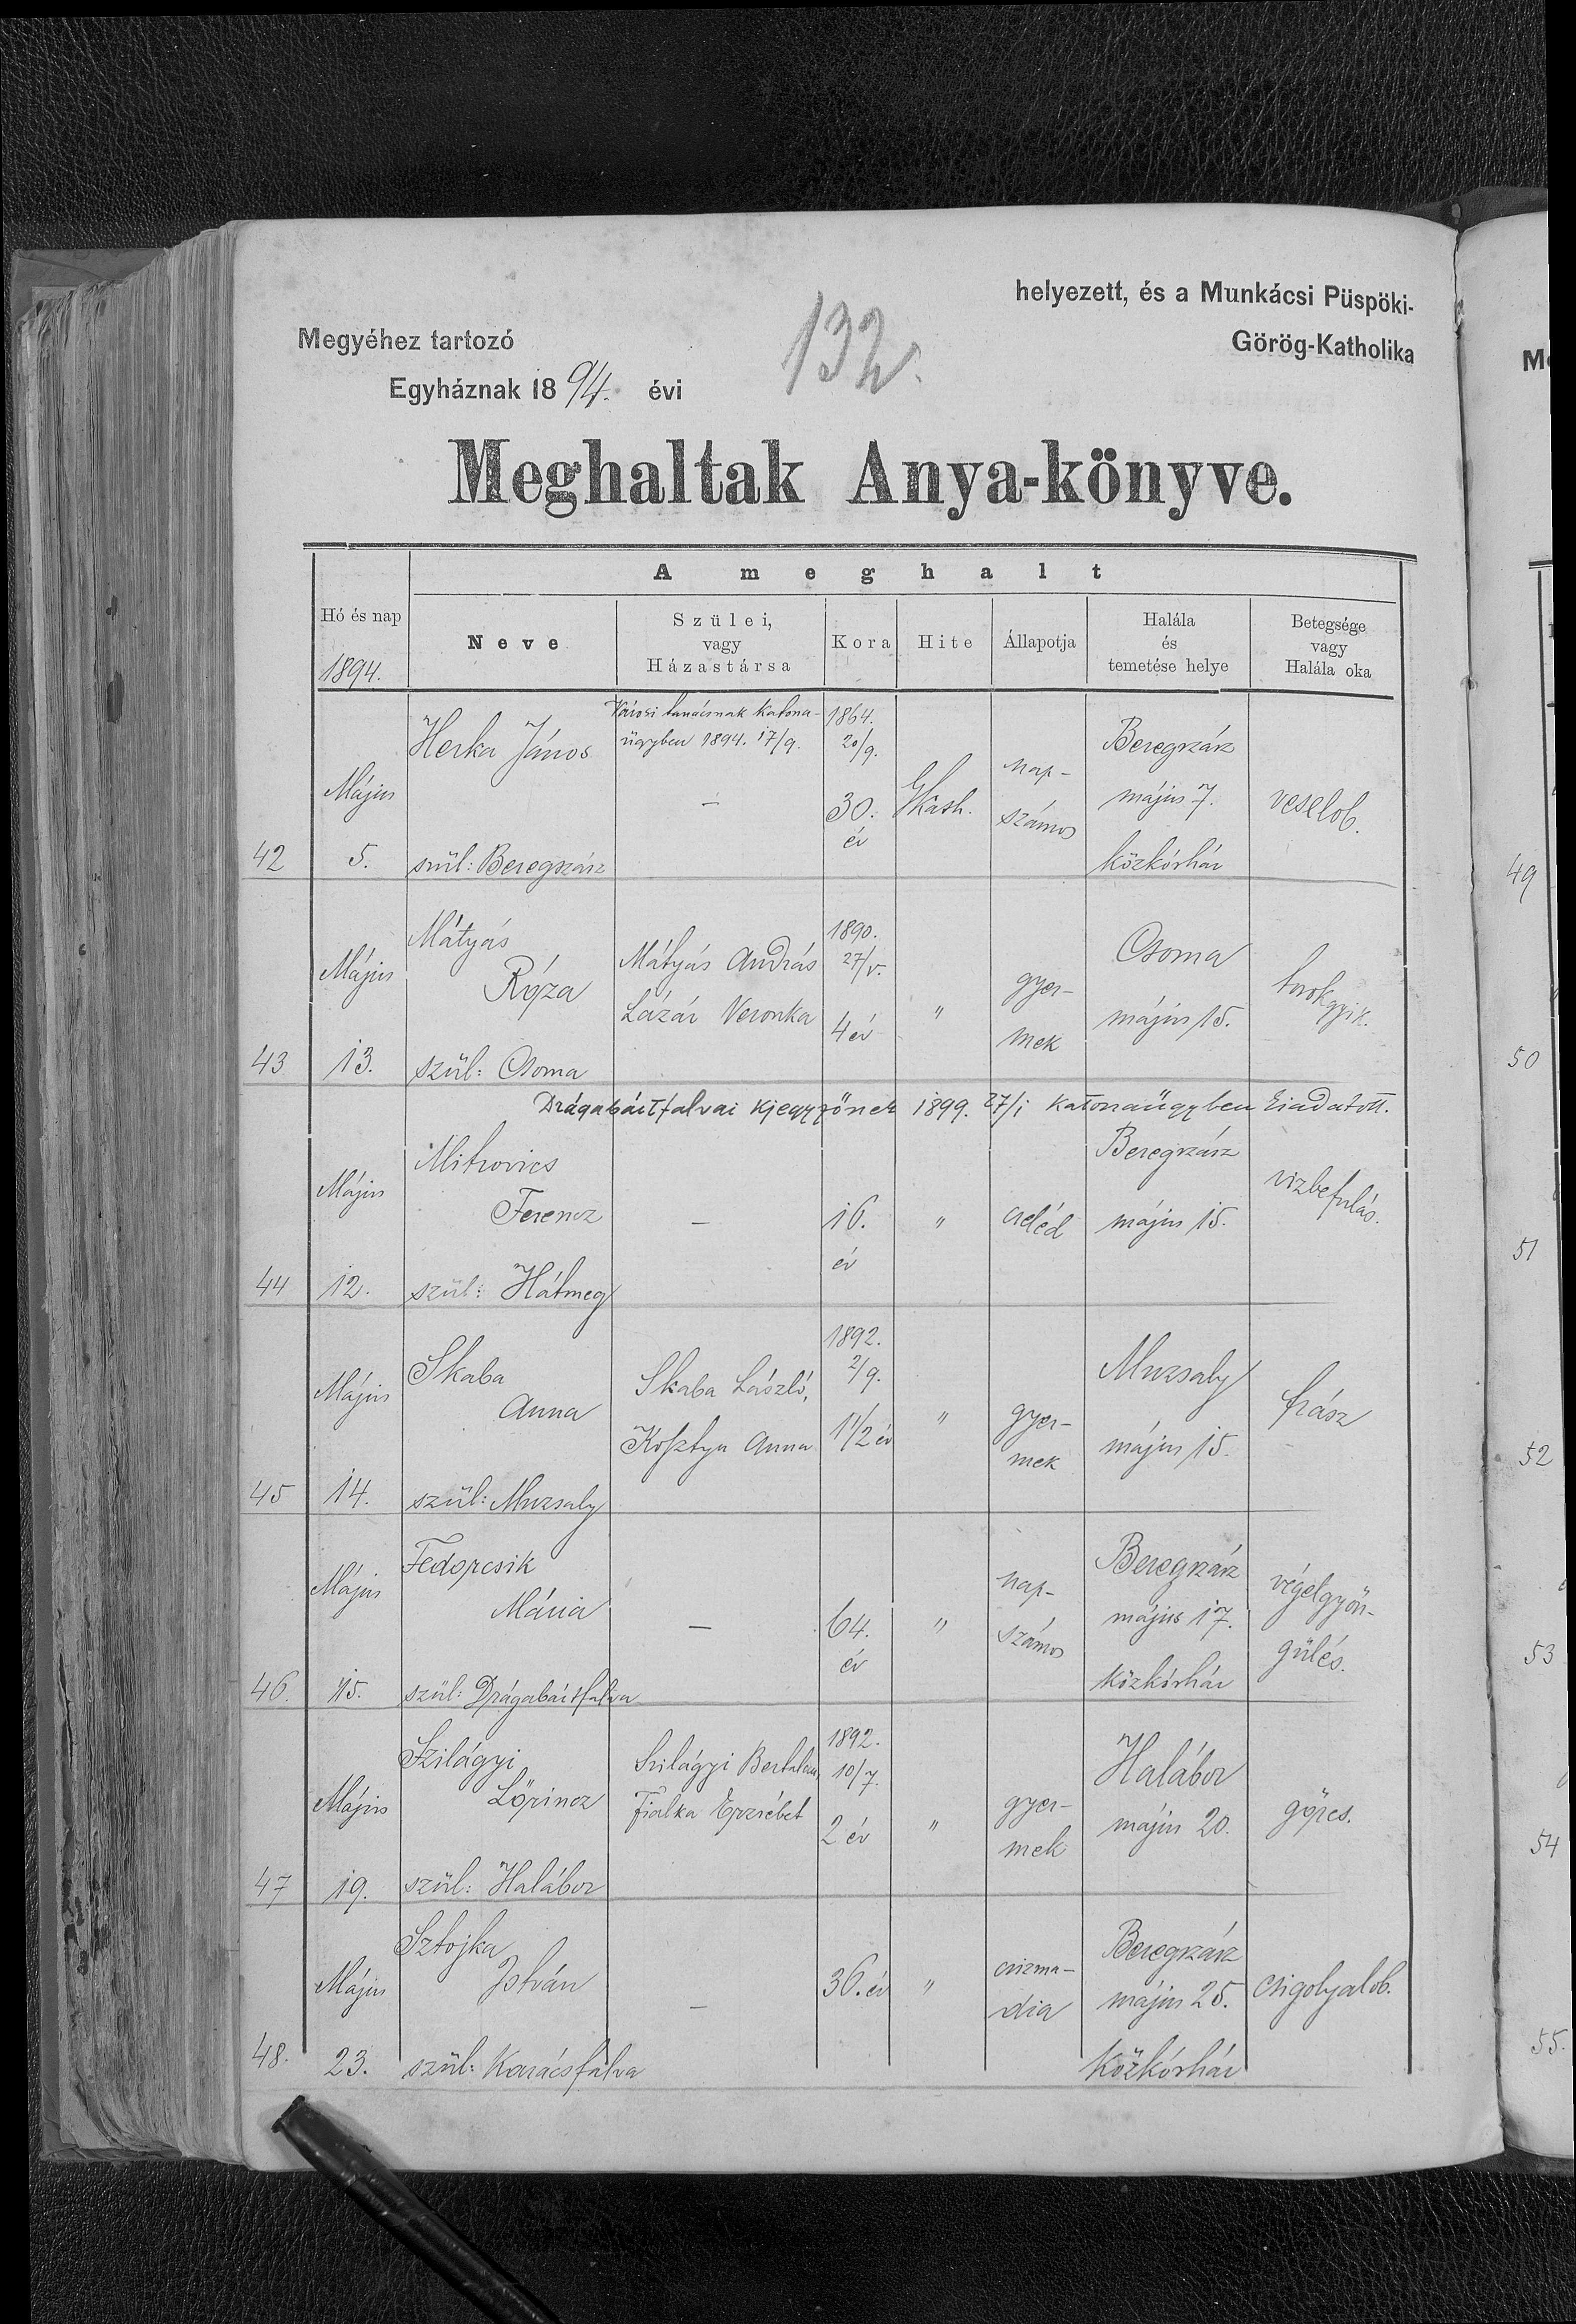 helyezett, és a Munkácsi Püspöki-
Megyéhez tartozó
Görög-Katholika
132.
Egyháznak 1894. évi
Meghaltak Anya-könyve.
A meghalt
Hó és nap
1894.
Neve
Szülei,
vagy
Házastársa
Kora
Hite
Állapotja
Halála
és
temetése helye
Betegsége
vagy
Halála oka
42
Május
5.
Herka János
szül: Beregszász
Városi tanácsnak katona-
ügyben 1894. 17/9.
—
1864.
20/9.
30.
év
Gkath.
nap-
számos
Beregszász
május 7.
közkórház
veselob.
43
Május
13.
Mátyás
Róza
szül: Csoma
Mátyás András
Lázár Veronka
1890.
27/V.
4 év
"
gyer-
mek
Csoma
május 15.
torokgyik.
Drágabártfalvai Kjegyzőnek 1899. 27/1 katonaügyben kiadatott.
44
Május
12.
Mitrovics
Ferencz
szül: Hátmeg
—
16.
év
"
cseléd
Beregszász
május 15.
vizbefulás.
45
Május
14.
Skaba
Anna
szül: Muzsaly
Skaba László,
Kosztyu Anna
1892.
2/9.
1 1/2 év
"
gyer-
mek
Muzsaly
május 15.
frász
46.
Május
15.
Fedorcsik
Mária
szül: Drágabártfalva
—
64.
év
"
nap-
számos
Beregszász
május 17.
közkórház
végelgyön-
gülés.
47
Május
19.
Szilágyi
Lőrincz
szül: Halábor
Szilágyi Bertalan,
Fialka Erzsébet
1892.
10/7.
2 év
"
gyer-
mek
Halábor
május 20.
görcs.
48.
Május
23.
Sztojka
István
szül: Karácsfalva
—
36. év
"
csizma-
dia
Beregszász
május 25.
Közkórház
csigolyalob.
49
50
51
52
53
54
55.